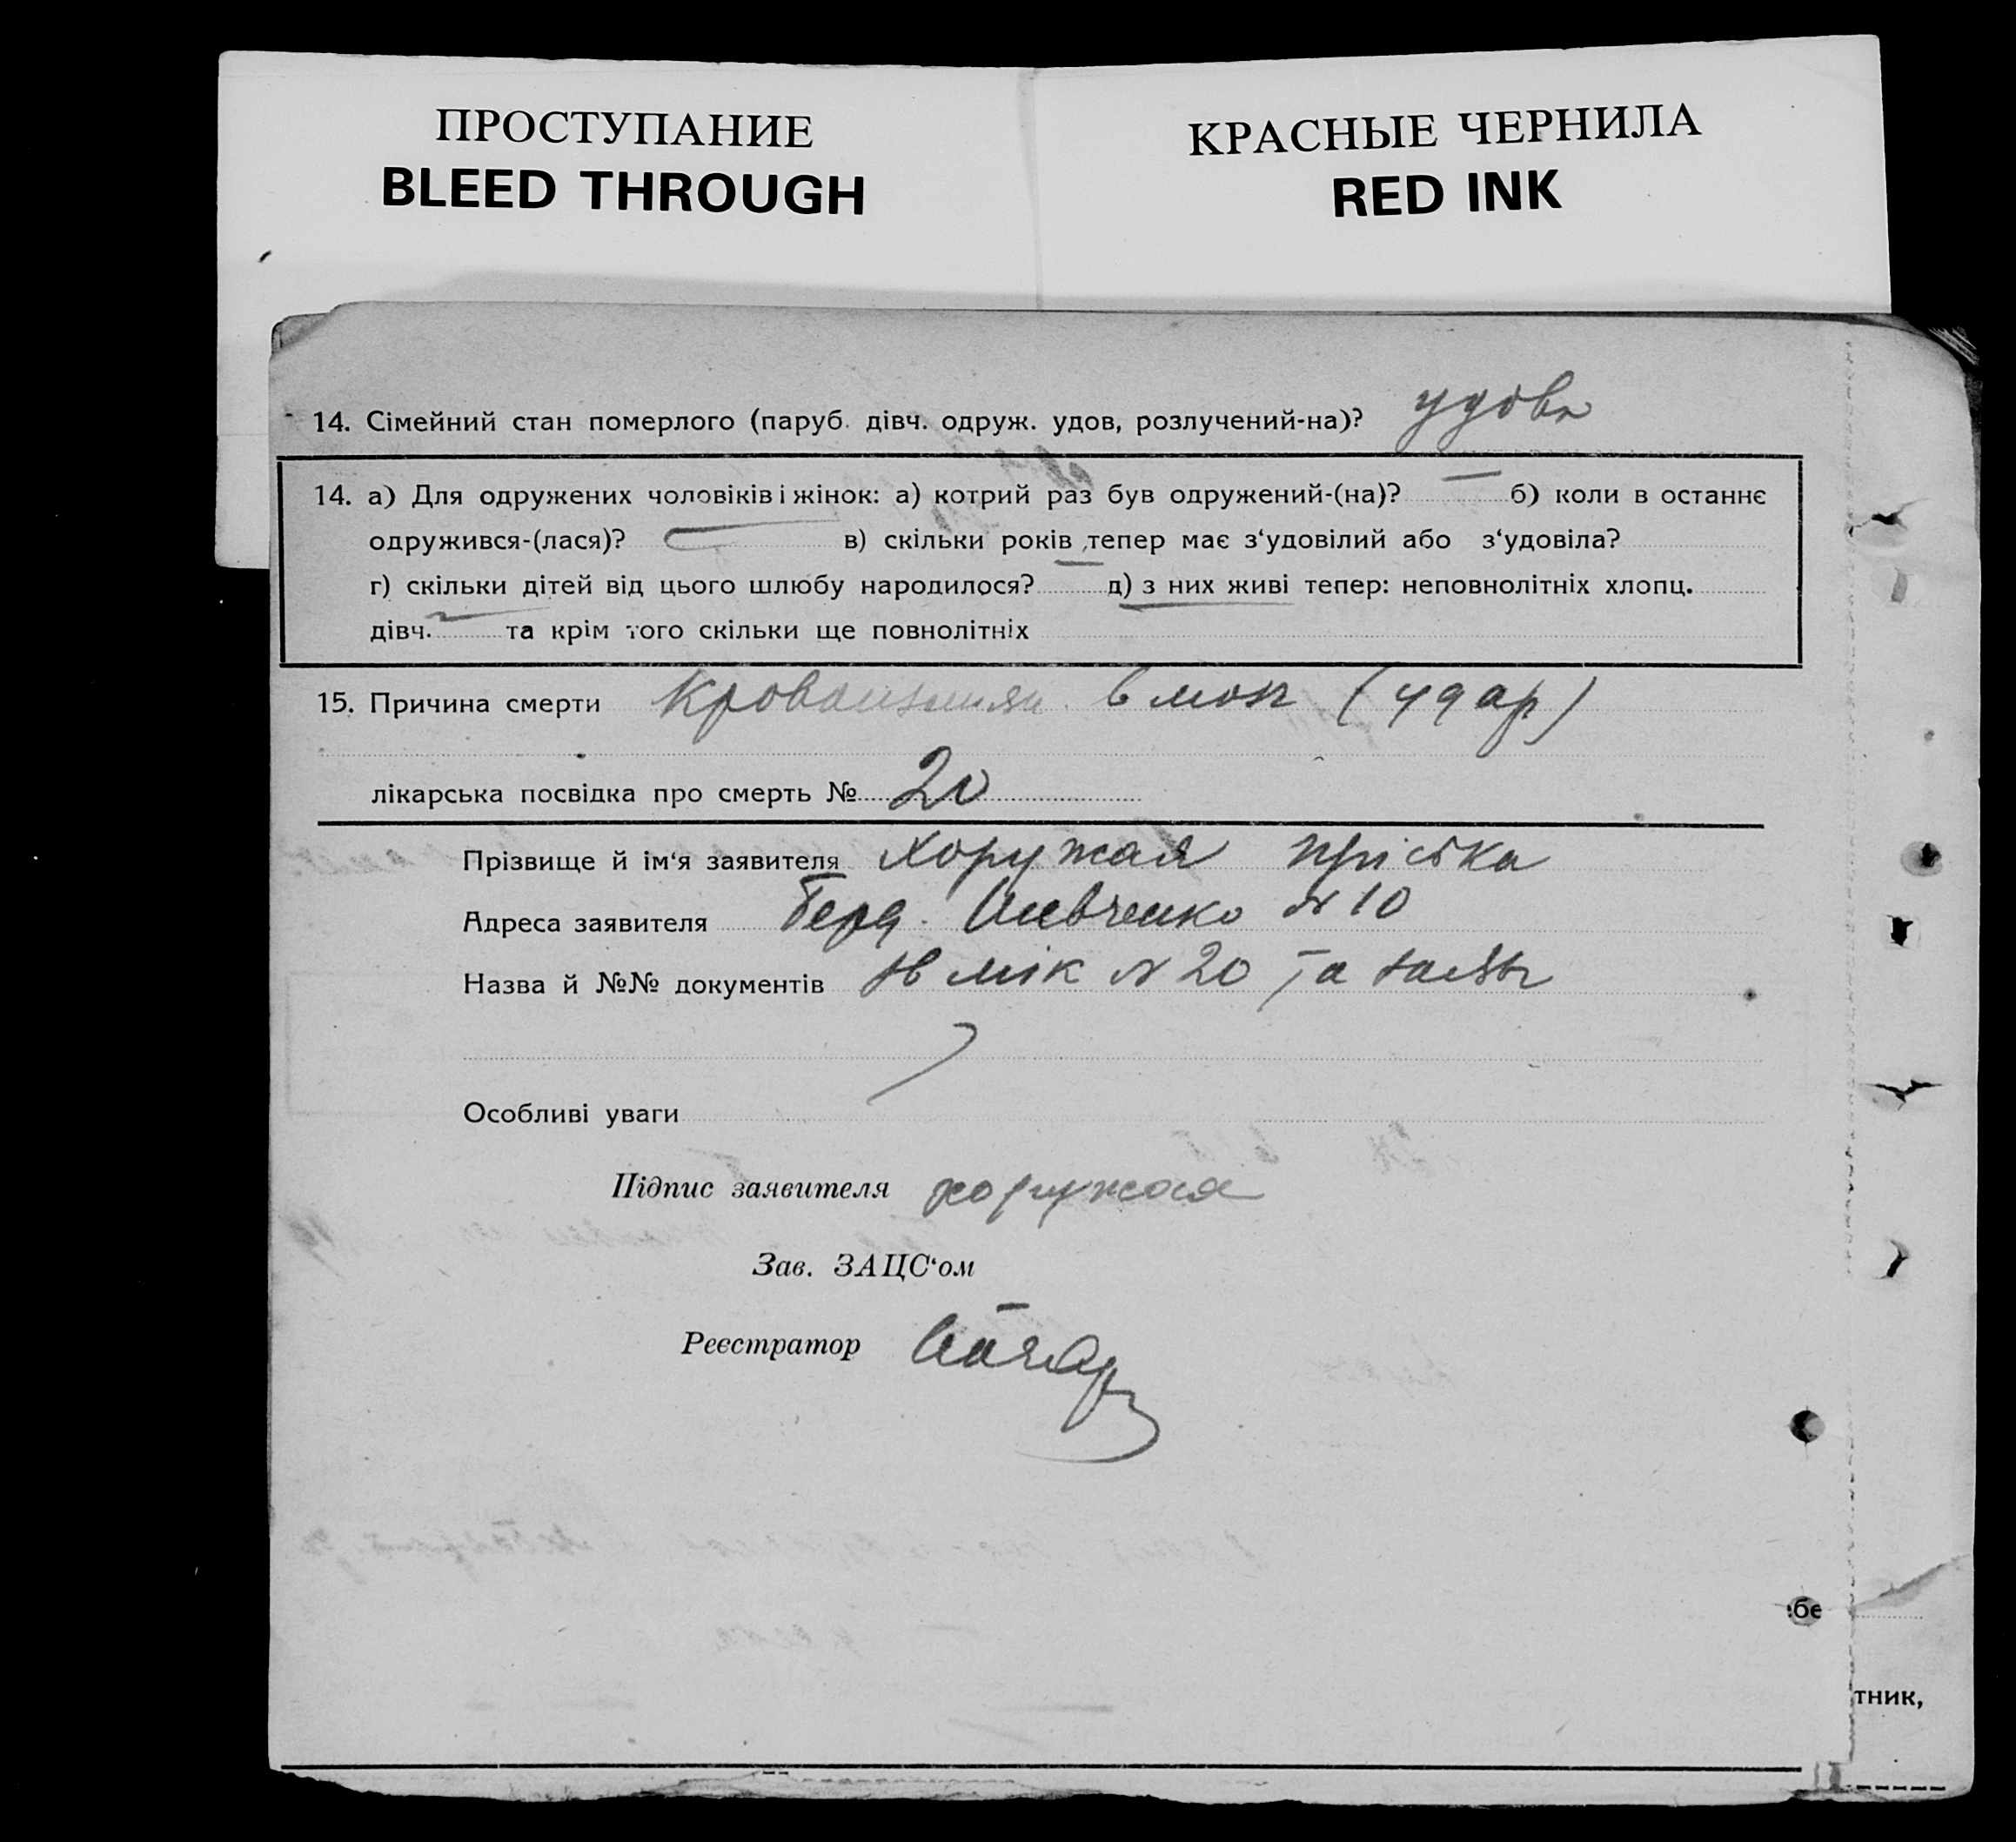 ПРОСТУПАНИЕ
BLEED THROUGH
КРАСНЫЕ ЧЕРНИЛА
RED INK
14. Сімейний стан померлого (паруб. дівч. одруж. удов, розлучений-на)? удова
14. а) Для одружених чоловіків і жінок: а) котрий раз був одружений-(на)? — б) коли в останнє
одружився-(лася)? — в) скільки років тепер має з‘удовілий або з‘удовіла?
г) скільки дітей від цього шлюбу народилося? — д) з них живі тепер: неповнолітніх хлопц.
дівч. — та крім того скільки ще повнолітніх
15. Причина смерти в мозк (удар)
лікарська посвідка про смерть № 20
Прізвище й ім‘я заявителя Хоружая Пріська
Адреса заявителя Берд. Шевченко № 10
Назва й №№ документів № 20 та
Особливі уваги
Підпис заявителя хоружая
Зав. ЗАЦС‘ом
Реєстратор
бе
тник,